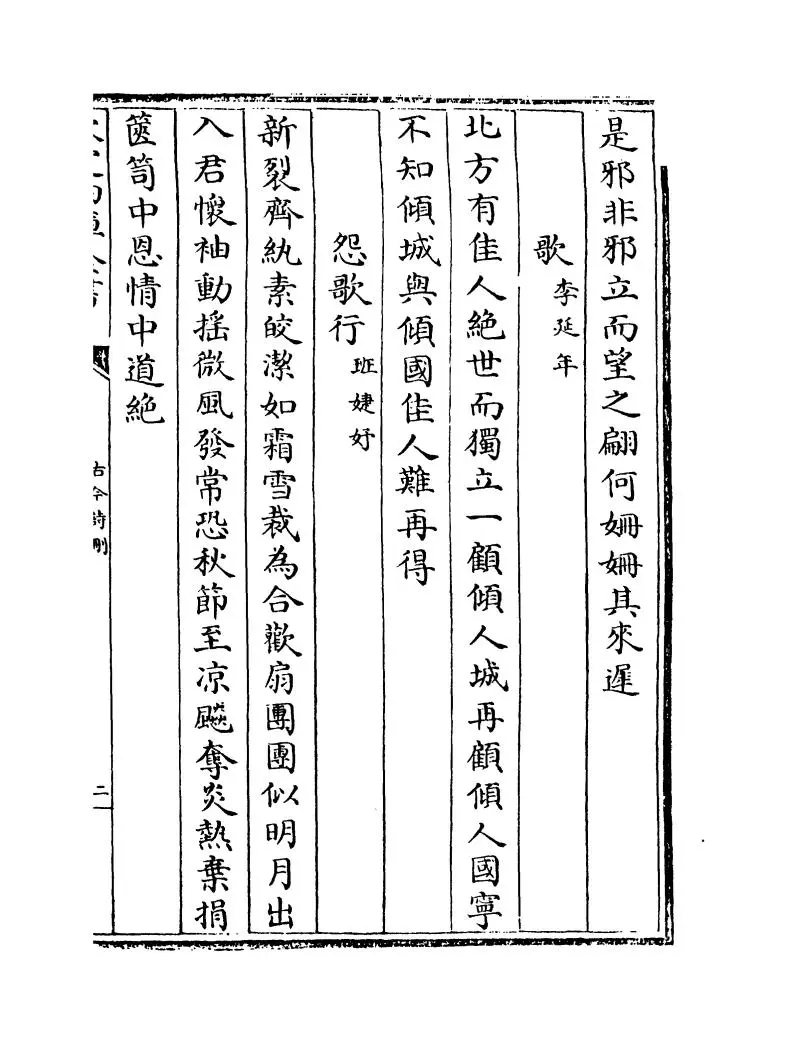 是邪非邪立而望之翩何姍姍其來遲
歌 李延年
北方有佳人絶世而獨立一顧傾人城再顧傾人國寧
不知傾城與傾國佳人難再得
怨歌行 班婕妤
新裂齊紈素皎潔如霜雪裁為合歡扇團團似明月出
入君懷袖動揺微風發常恐秋節至凉飇奪炎熱棄捐
篋笥中恩情中道絶
古今詩刪
二